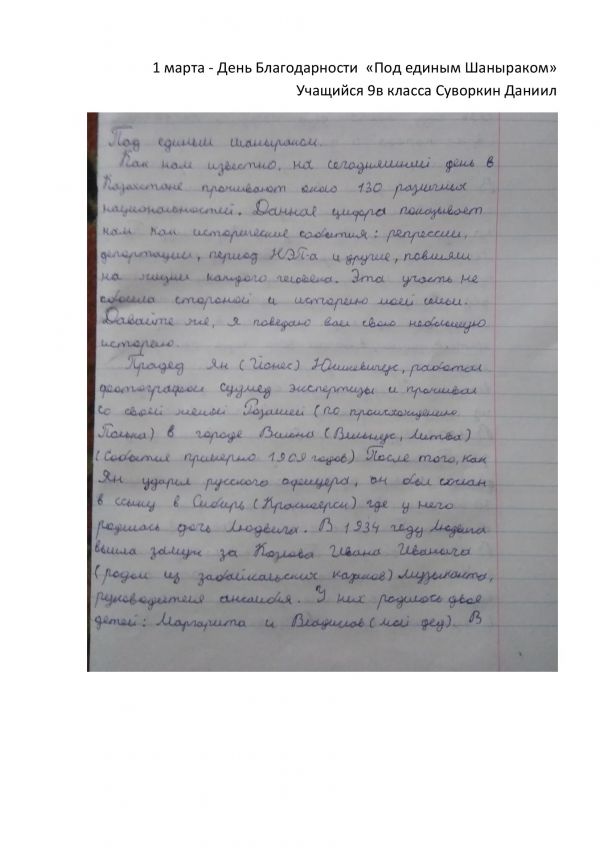 1 марта - День Благодарности «Под единым Шаныраком»
Учащийся 9в класса Суворкин Даниил
Под единым шаныраком.
Как нам известно, на сегодняшний день в
Казахстане проживают около 130 различных
национальностей. Данная цифра показывает
нам как исторические события: репрессии,
депортации, период НЭП-а и другие, повлияли
на жизни каждого человека. Эта участь не
обошла стороной и историю моей семьи.
Давайте же, я поведаю вам свою небольшую
историю.
Прадед Ян (Йонес) работал
фотографом судмед экспертизы и проживал
со своей женой (по происхождению
Полька) в городе (Вильнус, Литва)
(События примерно 1909 годов) После того, как
Ян ударил русского офицера, он был сослан
в ссылку в Сибирь (Красноярск) где у него
родилась дочь Людвига. В 1934 году Людвига
вышла замуж за Козлова Ивана Иваныча
(родом из забайкальских казаков) музыканта,
руководителя ансамбля. У них родилось двое
детей: Маргарита и Владислав (мой дед). В